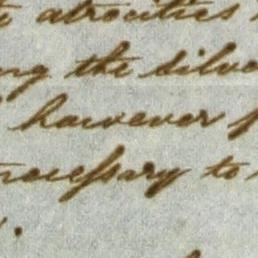 atrocities
the silve
however
necessary to
.